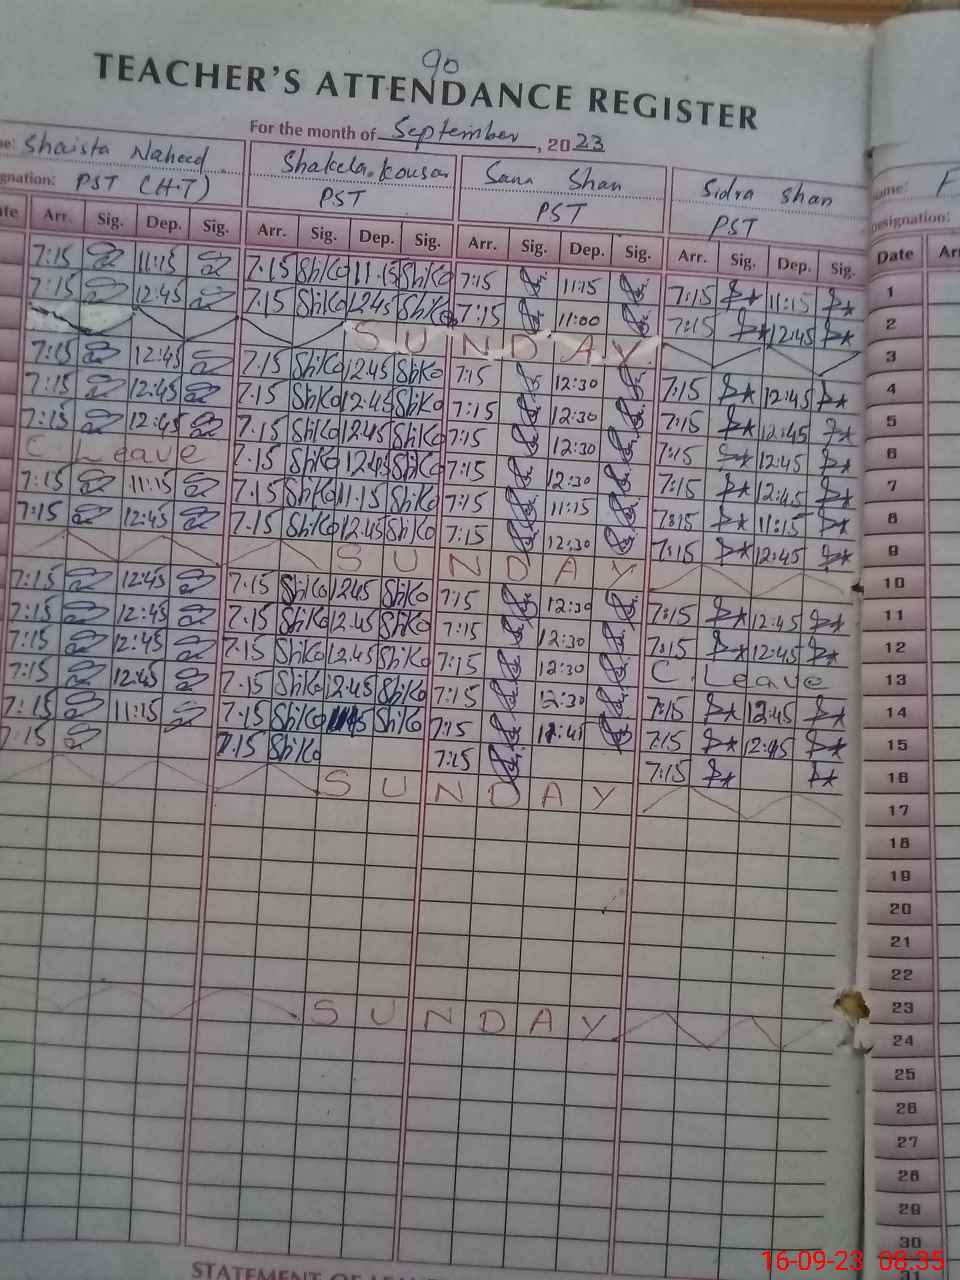 90
TEACHER'S ATTENDANCE REGISTER
For the month of September, 2023
Shaista Naheed Shakela Kousar Sana Shan Sidra Shan
PST (H.T) PST PST PST
Arr. Sig. Dep. Sig. Arr. Sig. Dep. Sig. Arr. Sig. Dep. Sig. Arr. Sig. Dep. Sig. Date
7:15 11:15 7.15 ShiKo 11.15 ShiKo 7:15 11:15 7:15 11:15 1
7:15 12:45 7.15 ShiKo 12.45 ShiKo 7:15 11:00 7:15 12:45 2
SUNDAY 3
7:15 12:45 7.15 ShiKo 12.45 ShiKo 7:15 12:30 7:15 12:45 4
7:15 12:45 7.15 ShiKo 12.45 ShiKo 7:15 12:30 7:15 12:45 5
7:15 12:45 7.15 ShiKo 12.45 ShiKo 7:15 12:30 7:15 12:45 6
C. Leave 7.15 ShiKo 12.45 ShiKo 7:15 12:30 7:15 12:45 7
7:15 11:15 7.15 ShiKo 11.15 ShiKo 7:15 11:15 7:15 11:15 8
7:15 12:45 7.15 ShiKo 12.45 ShiKo 7:15 12:30 7:15 12:45 9
SUNDAY 10
7:15 12:45 7.15 ShiKo 12.45 ShiKo 7:15 12:30 7:15 12:45 11
7:15 12:45 7.15 ShiKo 12.45 ShiKo 7:15 12:30 7:15 12:45 12
7:15 12:45 7.15 ShiKo 12.45 ShiKo 7:15 12:30 C. Leave 13
7:15 12:45 7.15 ShiKo 12.45 ShiKo 7:15 12:30 7:15 12:45 14
7:15 11:15 7.15 ShiKo ShiKo 7:15 7:15 12:45 15
7:15 7.15 ShiKo 7:15 7:15 16
SUNDAY 17
18
19
20
21
22
23
SUNDAY 24
25
26
27
28
29
30
STATEMENT OF
16-09-23 08:35